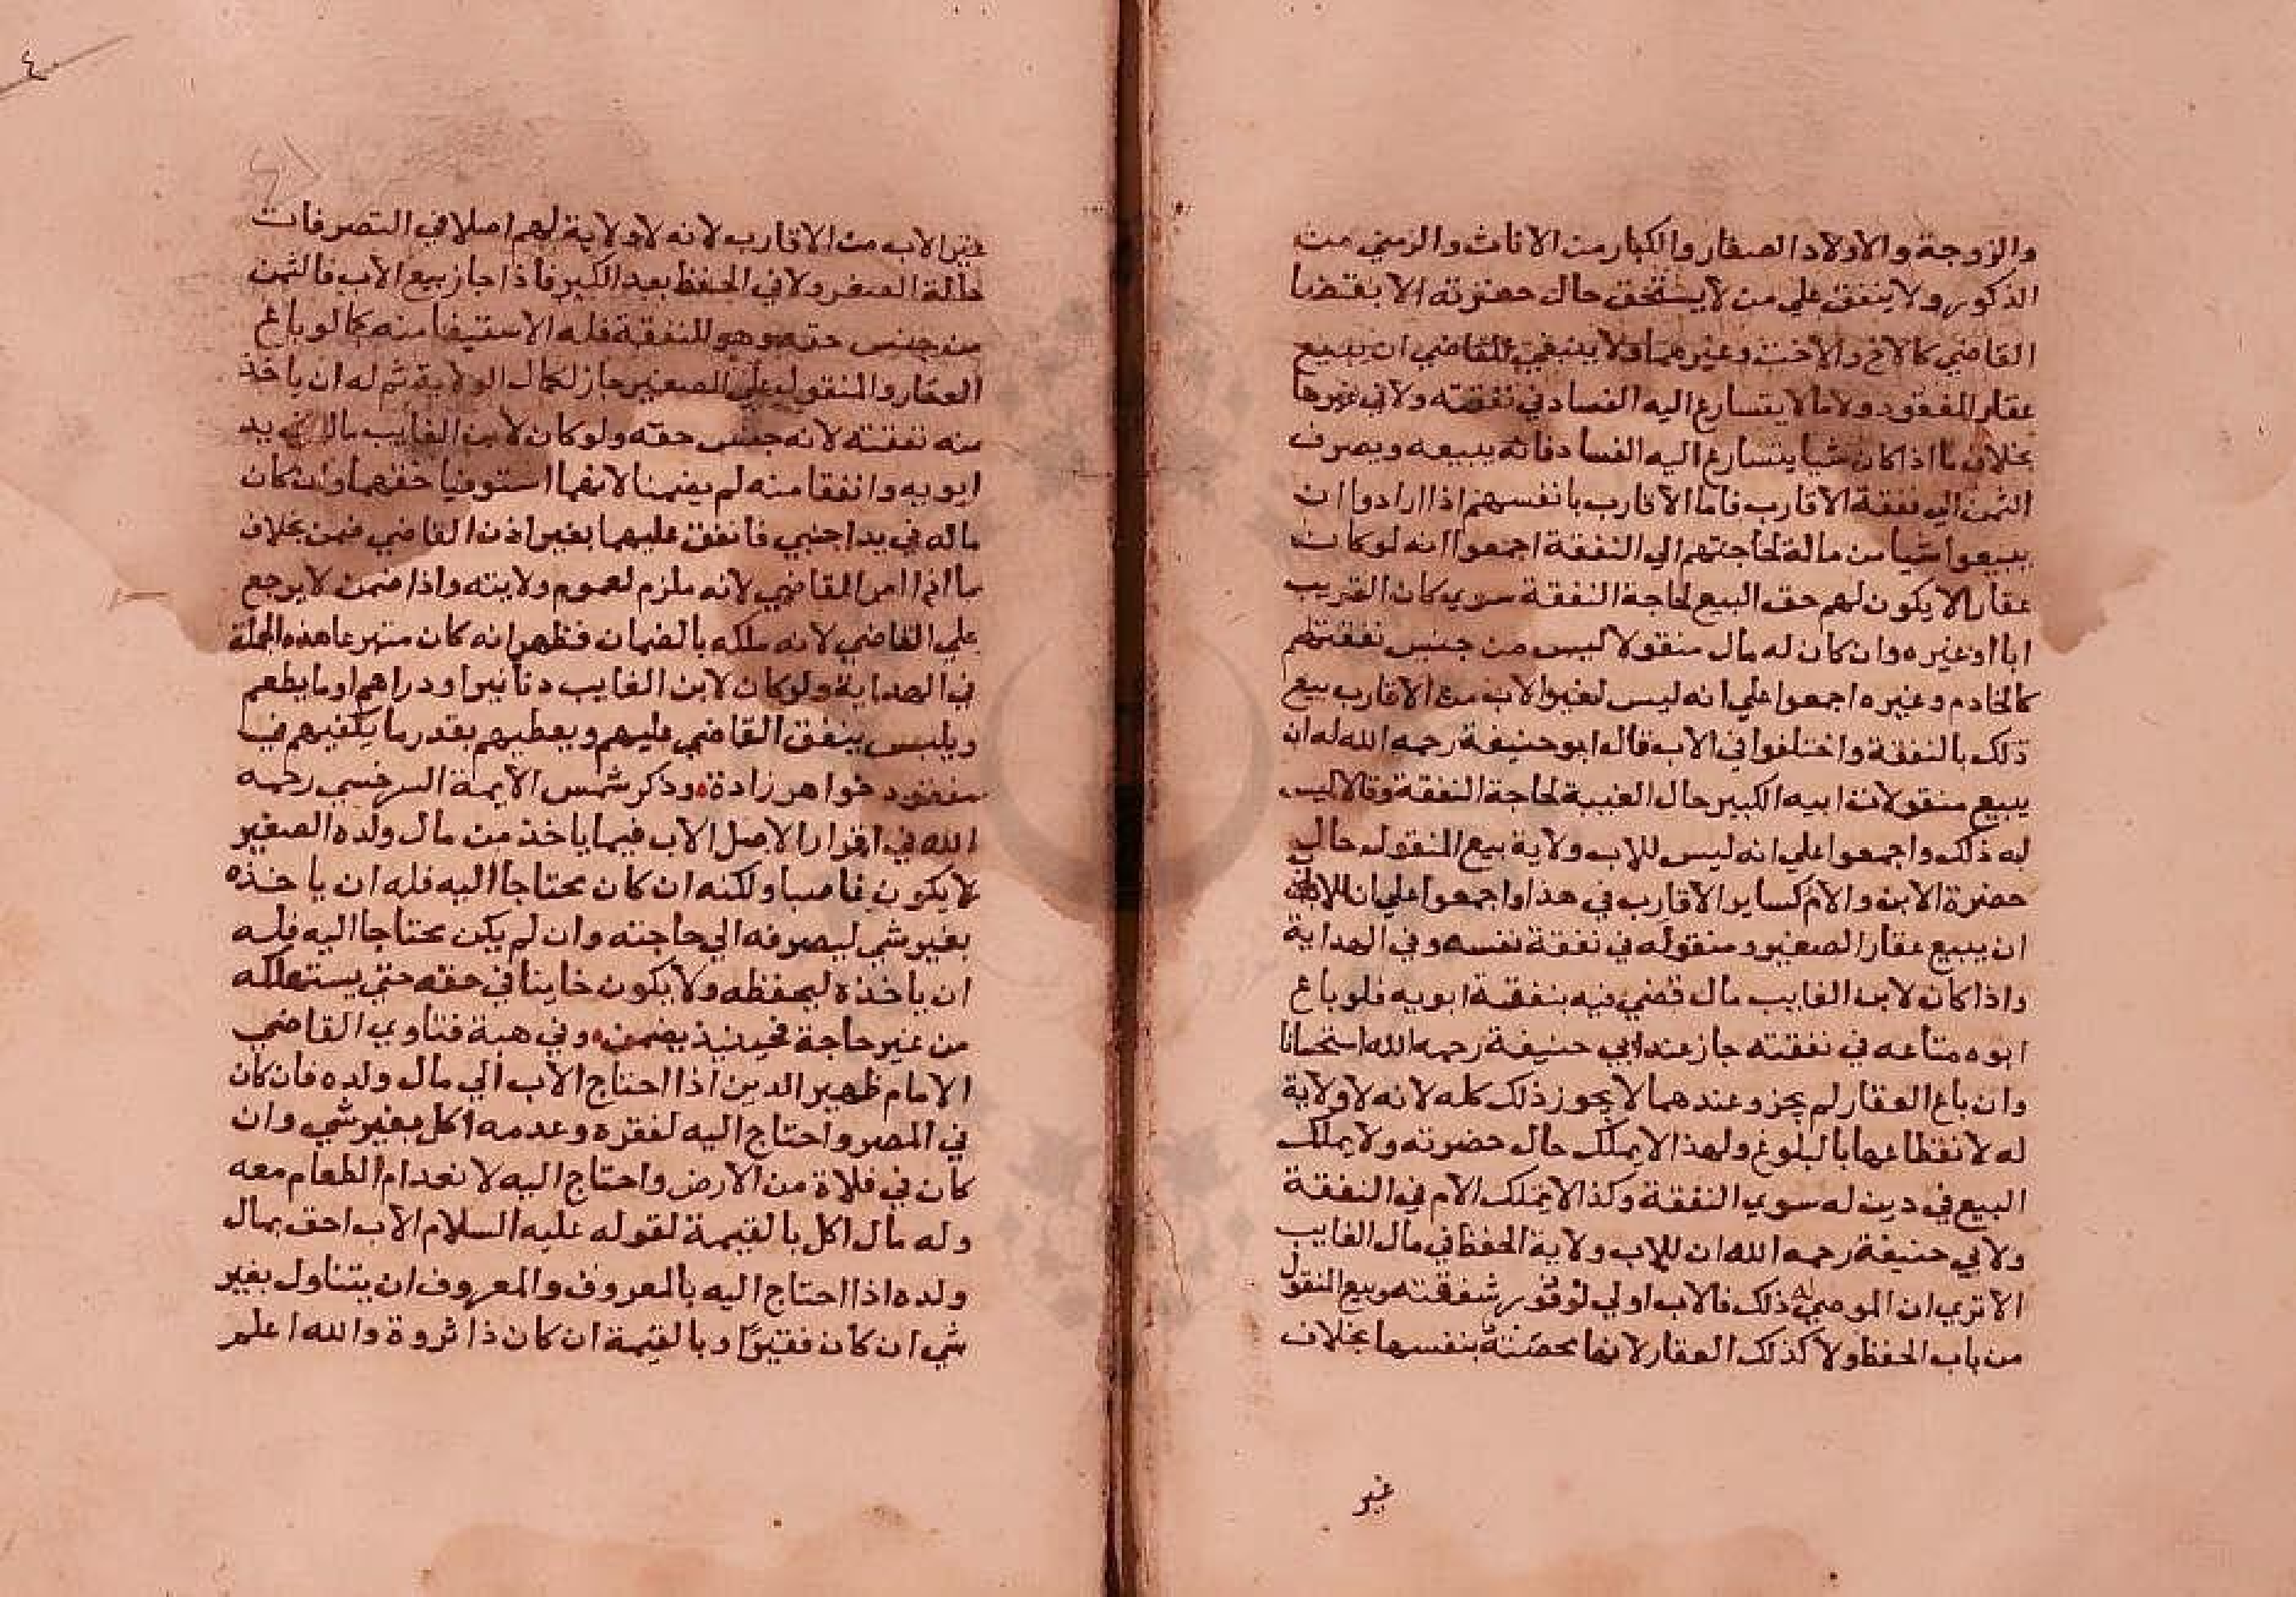 والزوجة والاولاد الصغار والكبار من الاناث والزمني من
الذكور ولا ينفق علي من لا يستحق حال حضرته الا بقضا
القاضي كالاخ والاخت وغيرهما ولا ينبغي للقاضي ان يبيع
عقار المفقود ولا ما لا يتسارع اليه الفساد في نفقته ولا في غيرها
بخلاف ما اذا كان شيا يتسارع اليه الفساد فانه يبيعه ويصرف
الثمن الي نفقة الاقارب فاما الاقارب بانفسهم اذا ارادوا ان
يبيعوا شيا من ماله لحاجتهم الي النفقة اجمعوا انه لو كان
عقارا لا يكون لهم حق البيع لحاجة النفقة سوي كان القريب
ابا او غيره وان كان له مال منقولا ليس من جنس نفقتهم
كالخادم وغيره اجمعوا علي انه ليس لغير الاب من الاقارب بيع
ذلك بالنفقة واختلفوا في الاب قال ابو حنيفة رحمه الله له ان
يبيع منقولات ابيه الكبير حال الغيبة لحاجة النفقة وقالا ليس
له ذلك واجمعوا علي انه ليس للاب ولاية بيع المنقول حال
حضرة الابن والام كساير الاقارب في هذا واجمعوا علي ان للاب
ان يبيع عقار الصغير ومنقوله في نفقة نفسه وفي الهداية
واذا كان لابن الغايب مال قضي فيه بنفقة ابويه فلو باع
ابوه متاعه في نفقته جاز عند ابي حنيفة رحمه الله استحسانا
وان باع العقار لم يجز وعندهما لا يجوز ذلك كله لانه لا ولاية
له لانقطاعها بالبلوغ ولهذا لا يملك حال حضرته ولا يملك
البيع في دين له سوي النفقة وكذا لا يملك الام في النفقة
ولابي حنيفة رحمه الله ان للاب ولاية الحفظ في مال الغايب
الا تري ان الموصي له ذلك فالاب اولي لوفور شفقته وبيع المنقول
من باب الحفظ ولا كذلك العقار لانها محصنة بنفسها بخلاف
غير
غير الاب من الاقارب لانه لا ولاية لهم اصلا في التصرفات
حالة الصغر ولا في الحفظ بعد الكبر فاذا جاز بيع الاب فالثمن
من جنس حقه وهو للنفقة فله الاستيفا منه كما لو باع
العقار والمنقول علي الصغير جاز لكمال الولاية ثم له ان ياخذ
منه نفقته لانه جنس حقه ولو كان لابن الغايب مال في يد
ابويه وانفقا منه لم يضمنا لانهما استوفيا حقهما وان كان
ماله في يد اجنبي فانفق عليهما بغير اذن القاضي ضمن بخلاف
ما اذا امر القاضي لانه ملزم لعموم ولايته واذا ضمن لا يرجع
علي القاضي لانه ملكه بالضمان فظهر انه كان متبرعا هذه الجملة
في الهداية ولو كان لابن الغايب دنانير او دراهم او ما يطعم
ويلبس ينفق القاضي عليهم ويعطيهم بقدر ما يكفيهم في
مفقود خواهر زادة وذكر شمس الايمة السرخسي رحمه
الله في اقرار الاصل الاب فيما ياخذ من مال ولده الصغير
لا يكون غاصبا ولكنه ان كان محتاجا اليه فله ان ياخذه
بغير شي ليصرفه الي حاجته وان لم يكن محتاجا اليه فله
ان ياخذه ليحفظه ولا يكون خاينا في حقه حتي يستهلكه
من غير حاجة فحينيذ يضمن وفي هبة فتاوي القاضي
الامام ظهير الدين اذا احتاج الاب الي مال ولده فان كان
في المصر واحتاج اليه لفقره وعدمه اكل بغير شي وان
كان في فلاة من الارض واحتاج اليه لانعدام الطعام معه
وله مال اكل بالقيمة لقوله عليه السلام الاب احق بمال
ولده اذا احتاج اليه بالمعروف والمعروف ان يتناول بغير
شي ان كان فقيرا وبالقيمة ان كان ذا ثروة والله اعلم